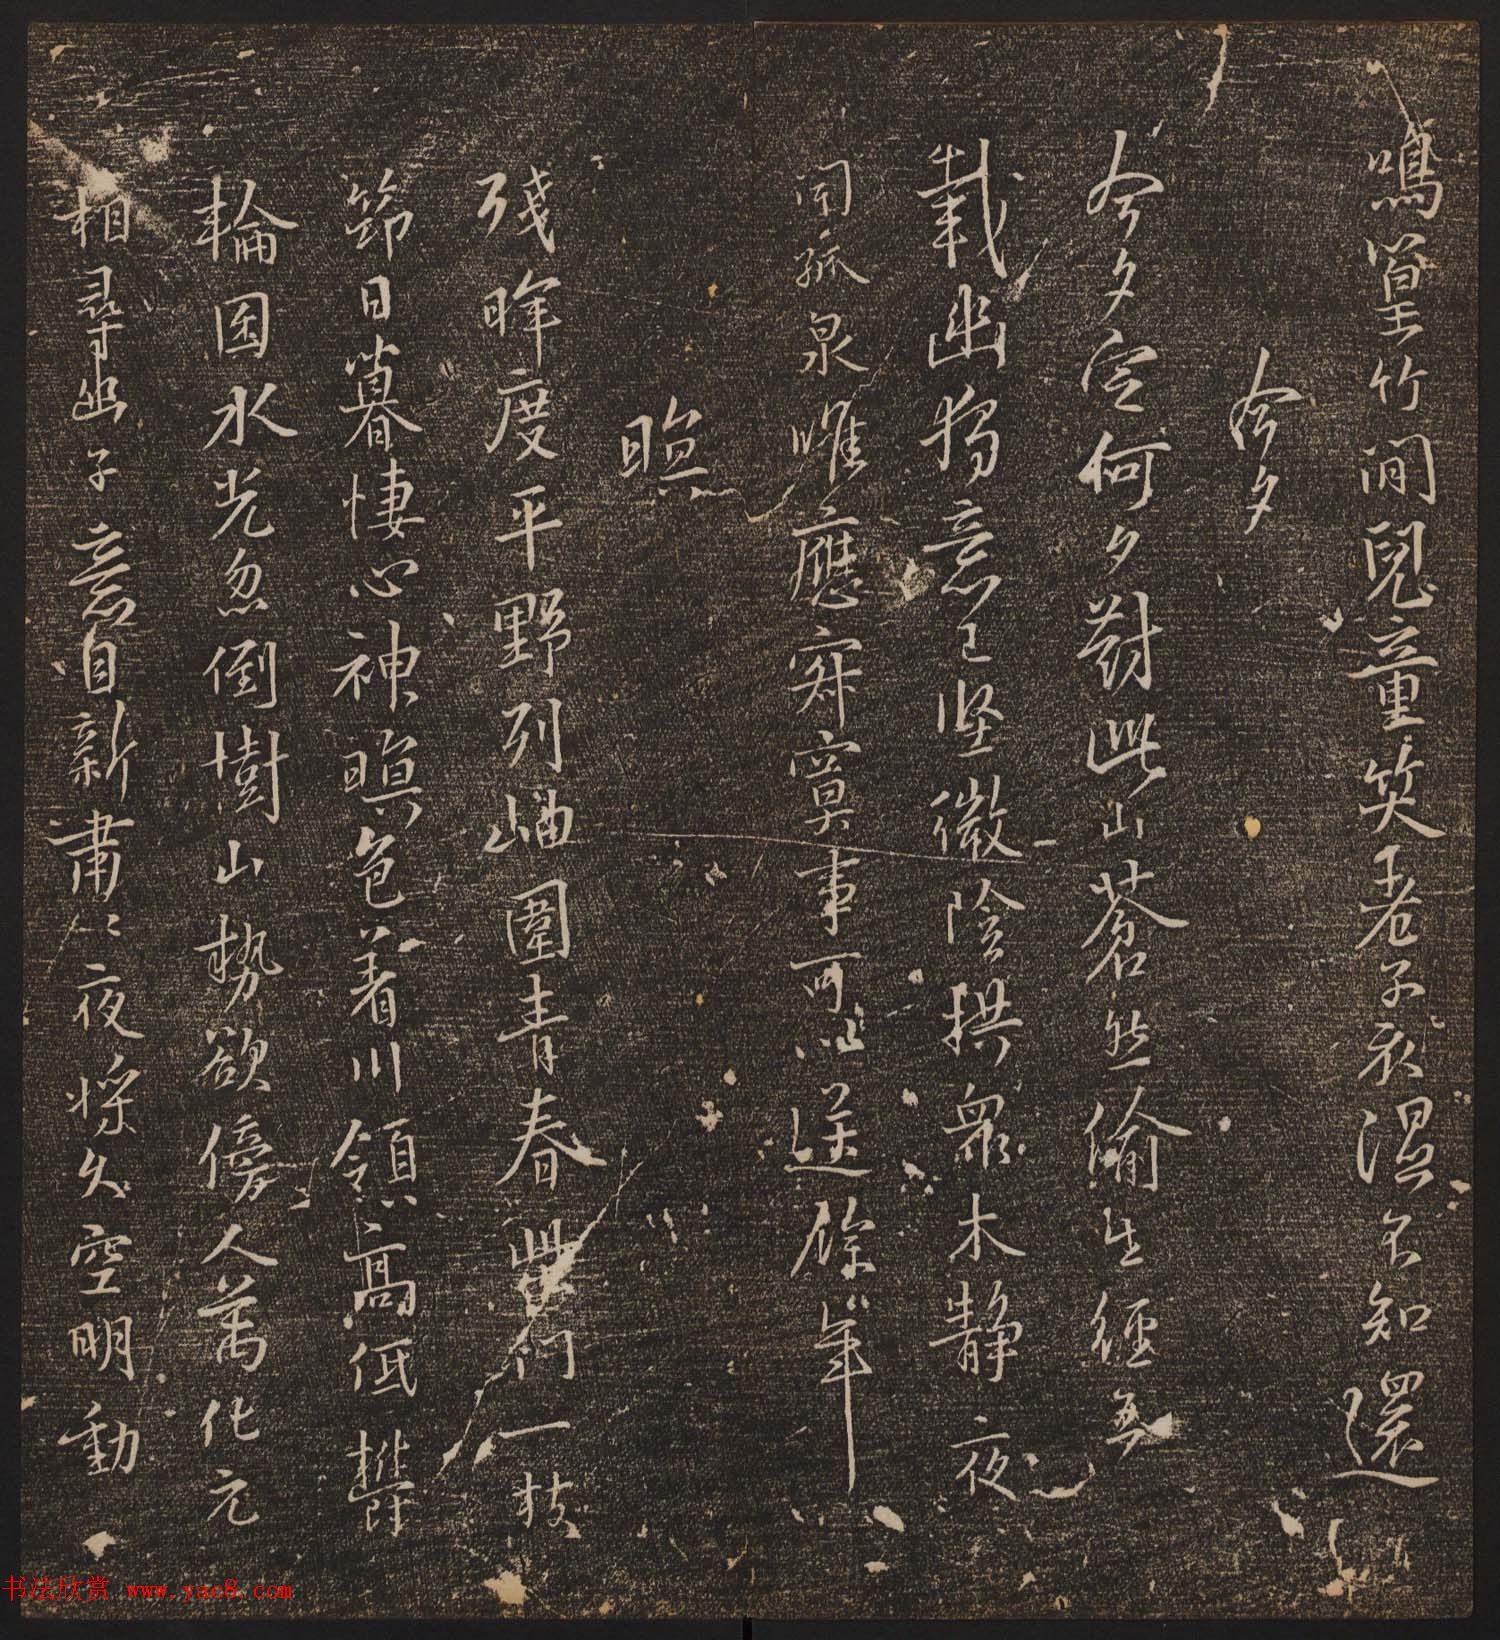 鳴篁竹間兒童笑巷子衣濕不知還
今夕
今夕定何夕對此山蒼然偷生經
載幽獨意已堅微陰拱眾木靜夜
聞孤泉唯應寂寞事可以送餘年
暝
殘暉度平野列岫圍青春 何一枝
節日暮悽心神暝色着川領高低
輪囷水光忽倒樹山勢欲傍人萬化元
相尋幽子意自新肅肅夜將久空明動
书法欣赏 www.yac8.com